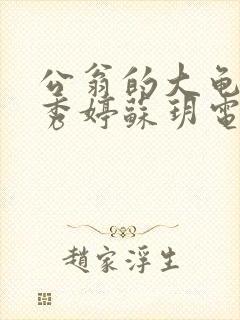 公翁的大龟
秀婷蘇玥電
趙家浮生